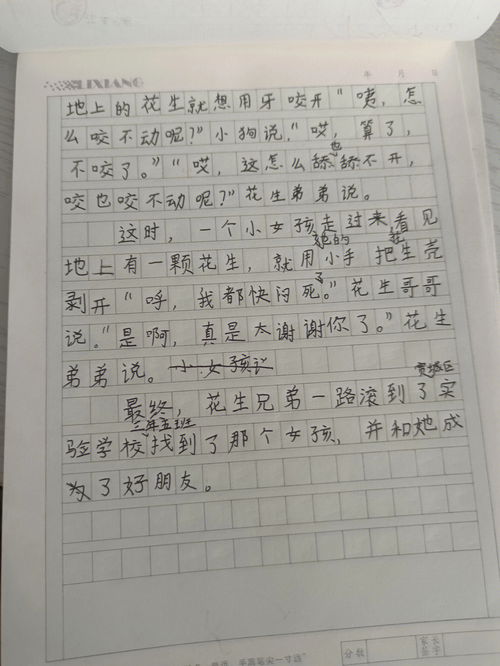 LIXIANG
年 月 日
地上的花生就想用牙咬开“咦,怎
么咬不动呢?”小狗说,“哎,算了,
不咬了。”“哎,这怎么舔也舔不开,
咬也咬不动呢?”花生弟弟说。
这时,一个小女孩走过来,看见
地上有一颗花生,就用她的小手把花生壳
剥开“呼,我都快闷死了。”花生哥哥
说。“是啊,真是太谢谢你了。”花生
弟弟说。小女孩说
最终,花生兄弟一路滚到了宽城区实
验学校三年五班找到了那个女孩,并和她成
为了好朋友。
分数
家长
签字